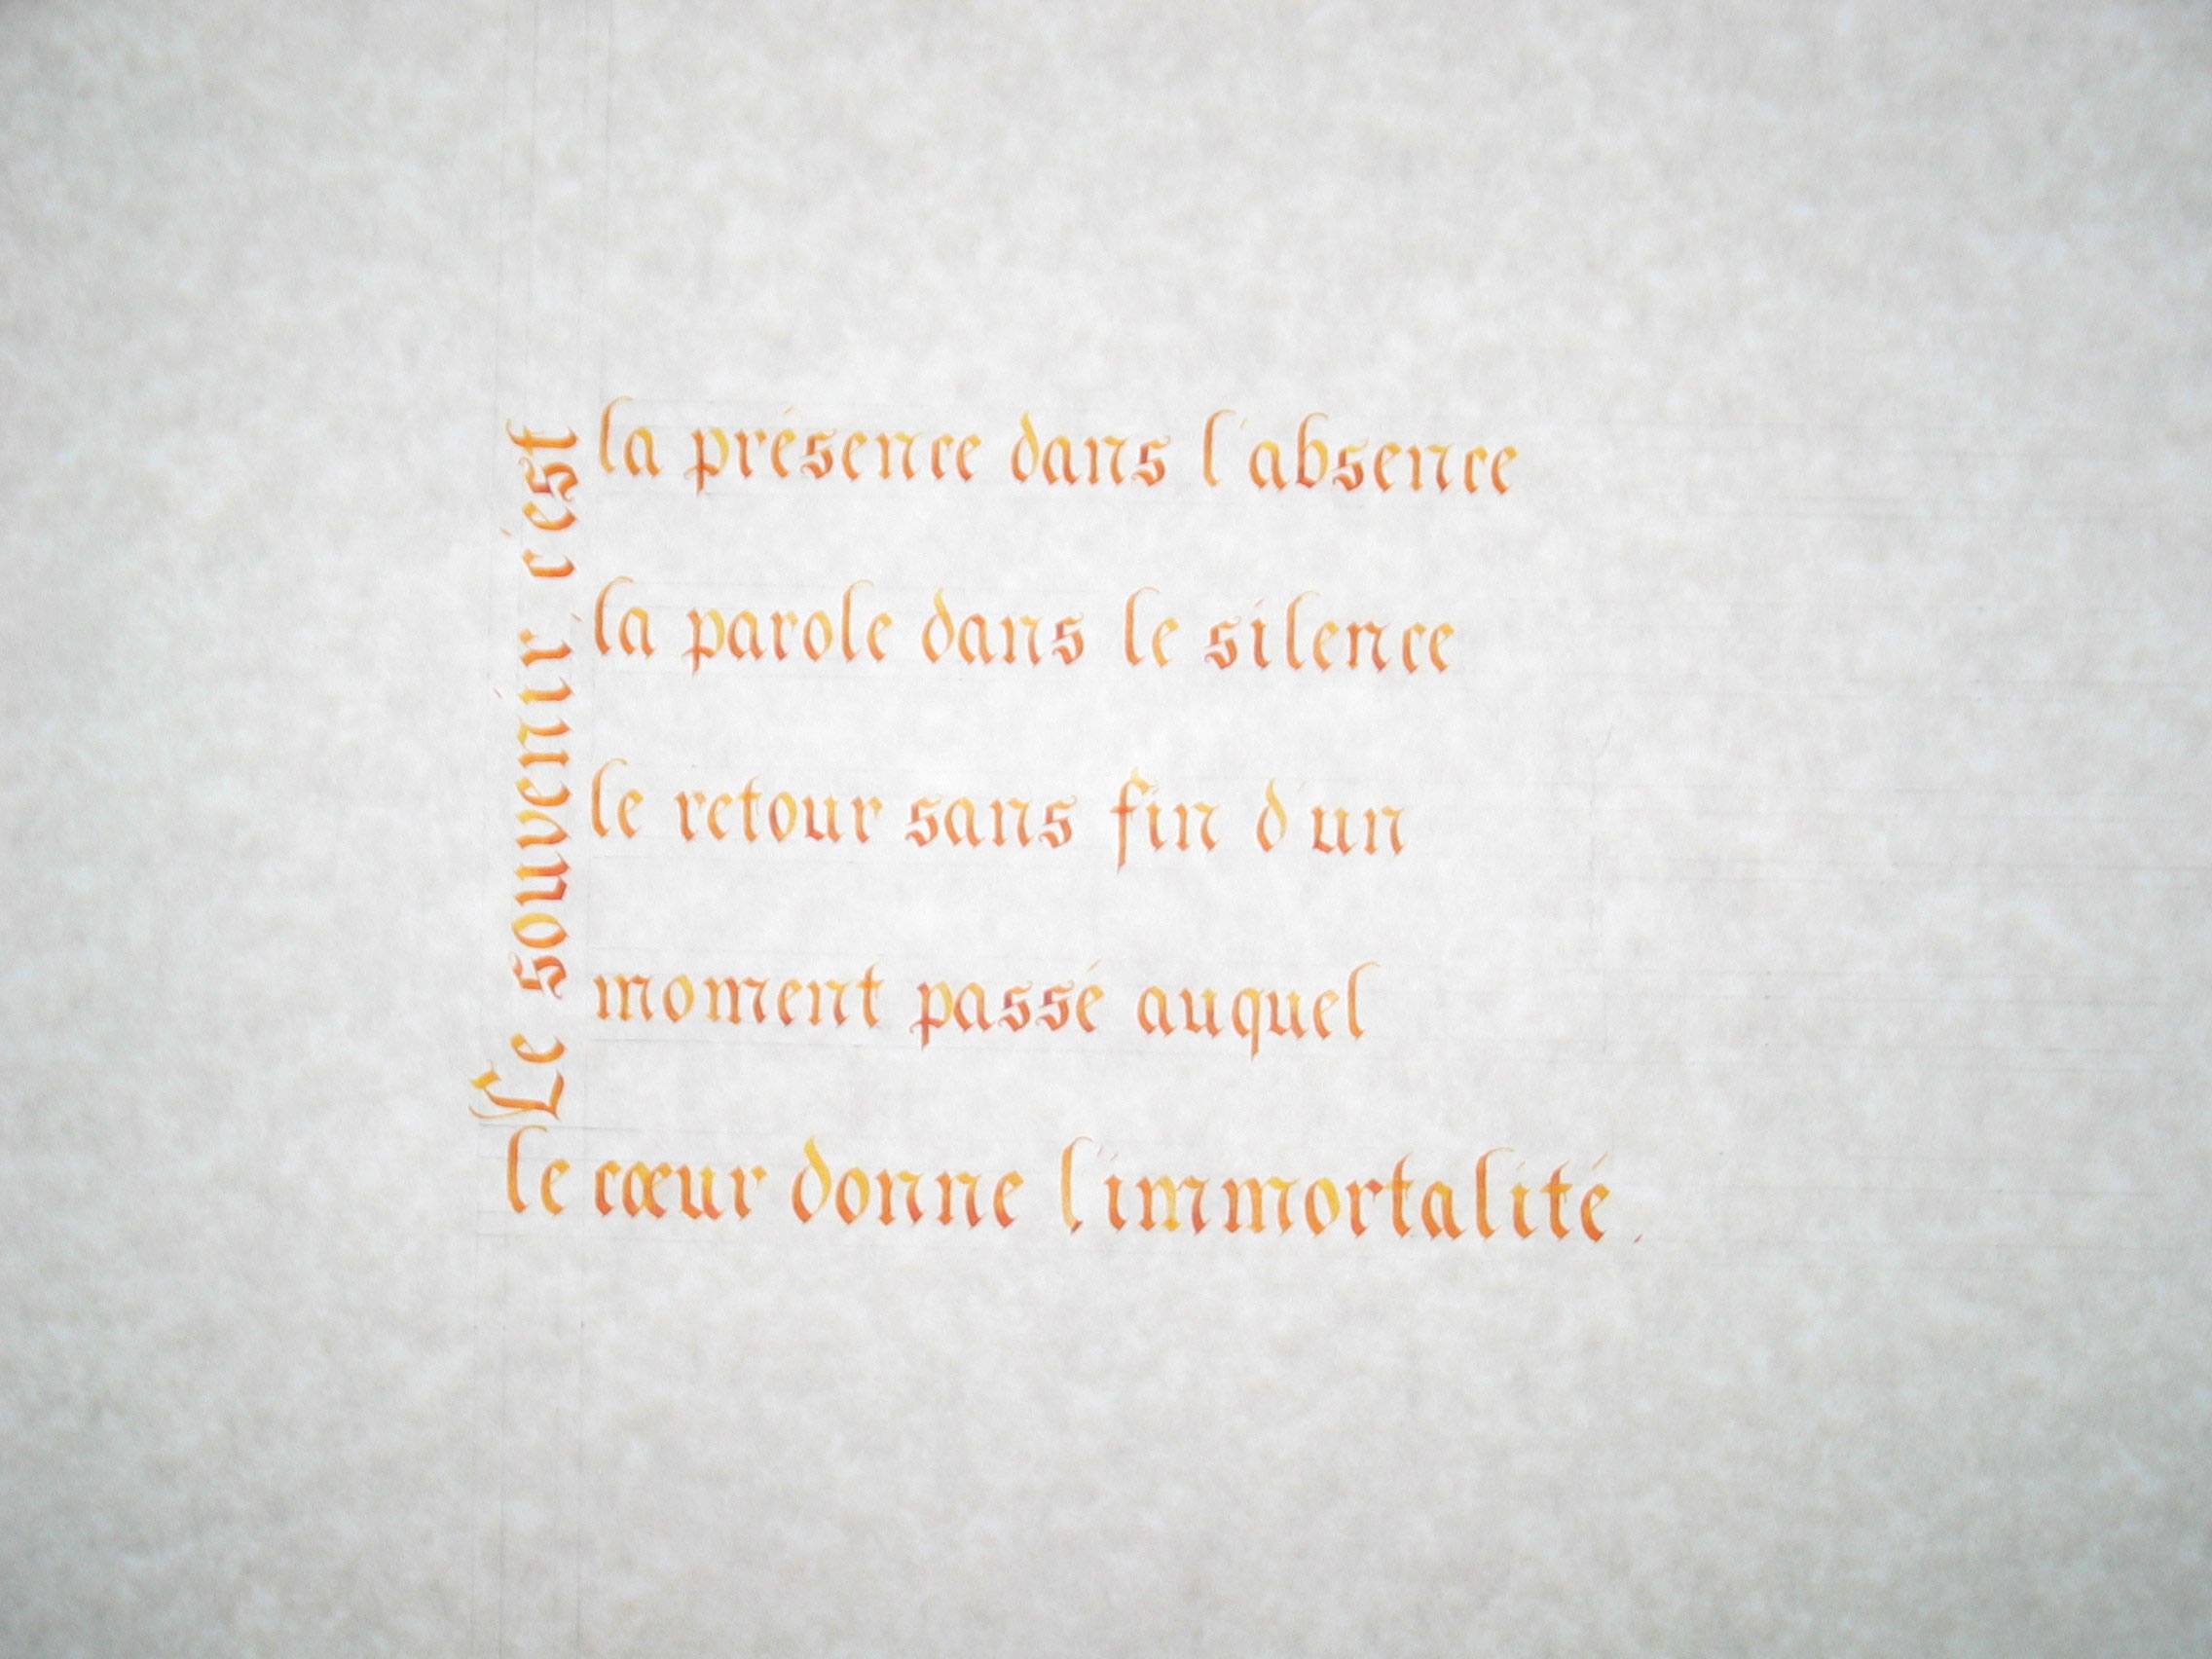 Le souvenir c'est
la présence dans l'absence
la parole dans le silence
le retour sans fin d'un
moment passé auquel
le cœur donne l'immortalité.